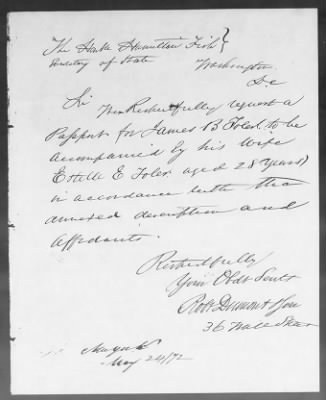 The Honble Hamilton Fish }
Secretary of State
Washington
D.C
Sir
We Respectfully request a
Passport for James B Toler to be
accompanied by his wife
Estelle E Toler aged 28 Years)
in accordance with the
annexed description and
Affidavits.
Respectfully
Your Obdt Servts
Robt Dumont & Son
36 Wall Street
May 24/72